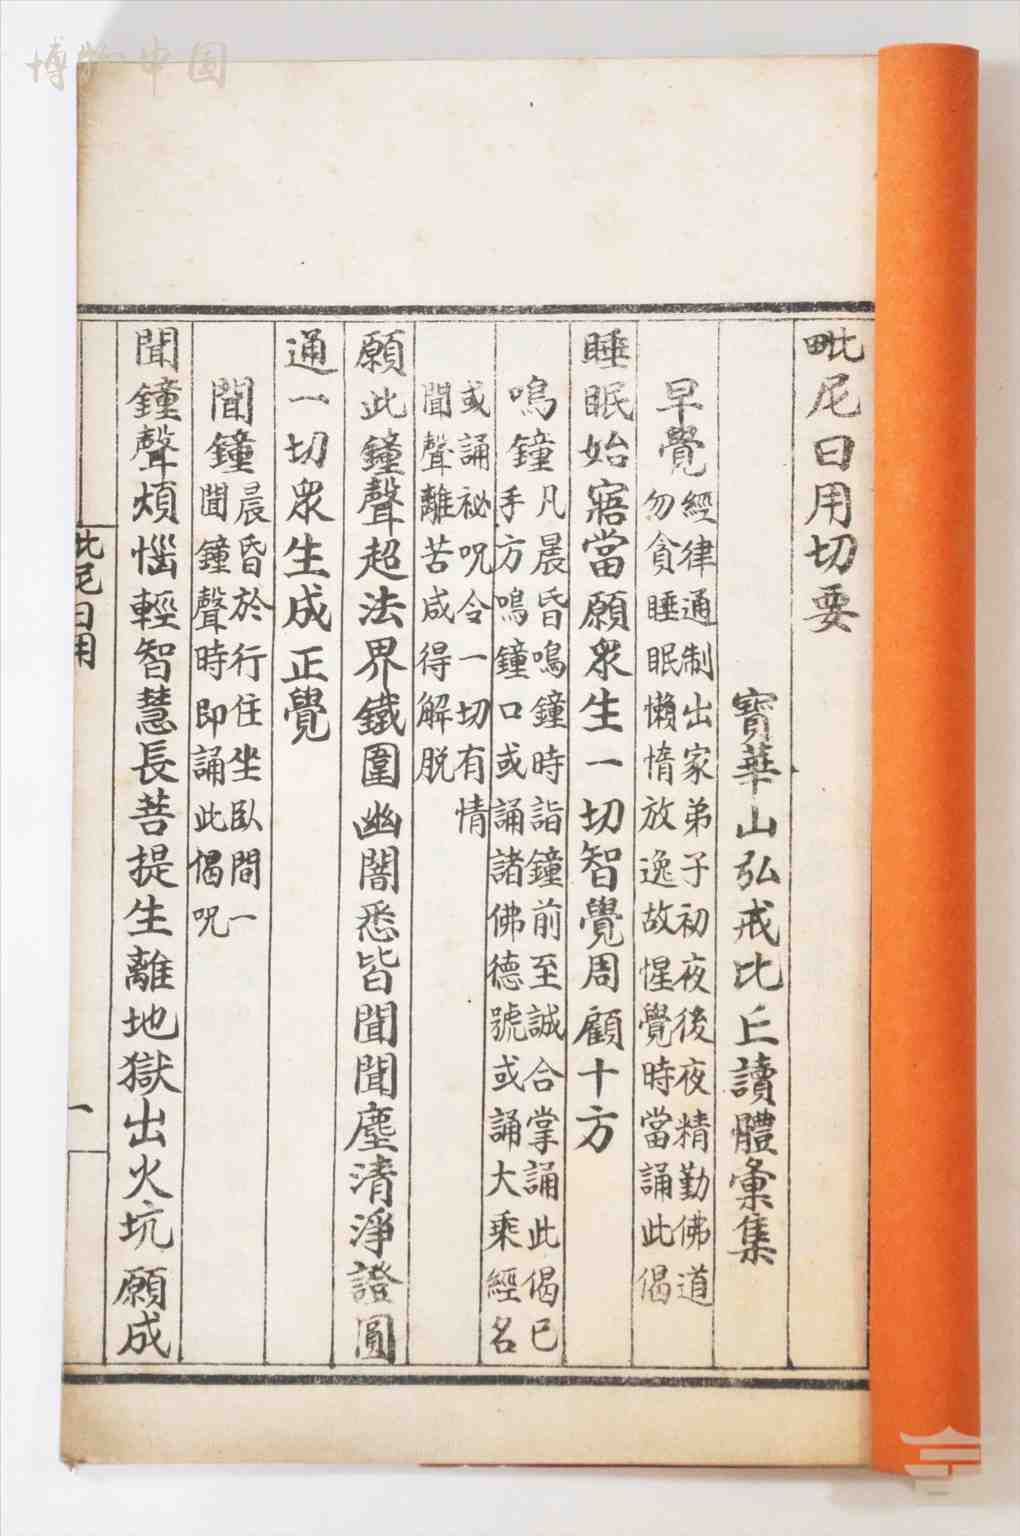 博物中国
毗尼日用切要
寶華山弘戒比丘讀體彙集
早覺
經律通制出家弟子初夜後夜精勤佛道
勿貪睡眠懶惰放逸故惺覺時當誦此偈
睡眠始寤當願眾生一切智覺周顧十方
鳴鐘
凡晨昏鳴鐘時詣鐘前至誠合掌誦此偈已
手方鳴鐘口或誦諸佛德號或誦大乘經名
或誦祕咒令一切有情
聞聲離苦咸得解脫
願此鐘聲超法界鐵圍幽闇悉皆聞聞塵清淨證圓
通一切眾生成正覺
聞鐘
晨昏於行住坐臥間一
聞鐘聲時即誦此偈咒
聞鐘聲煩惱輕智慧長菩提生離地獄出火坑願成
毗尼日用
一